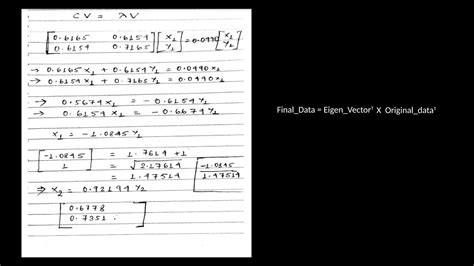 CV = λV
[0.6165 0.6154
0.6154 0.7165] [x1
y1] = 0.0490 [x1
y1]
→ 0.6165 x1 + 0.6154 y1 = 0.0490 x1
→ 0.6154 x1 + 0.7165 y1 = 0.0490 y1
→ 0.5674 x1 = - 0.6154 y1
→ 0.6154 x1 = - 0.6674 y1
x1 = - 1.0845 y1
[-1.0845
1] = 1.7614 + 1
= √2.17614
= 1.47514
[-1.0845
1.47514]
⇒ x2 = 0.92194 y2
[0.6778
0.7351]
Final_Data = Eigen_Vectorᵀ X Original_dataᵀ